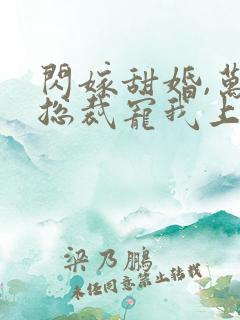 閃嫁甜婚,萬
總裁寵我上
梁乃鵬
未任同意禁止转载